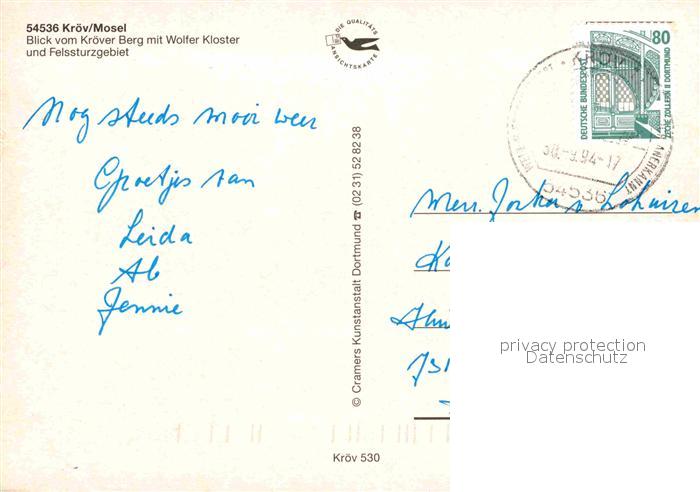 54536 Kröv/Mosel
Blick vom Kröver Berg mit Wolfer Kloster
und Felssturzgebiet
DIE QUALITÄTS
ANSICHTSKARTE
80
DEUTSCHE BUNDESPOST
ZECHE ZOLLERN II DORTMUND
KRÖV
ANERKANNT
30.-9.94-17
54536
Nog steeds mooi weer
Groetjes van
Leida
Ab
Jennie
© Cramers Kunstanstalt Dortmund ☎ (02 31) 52 82 38
Kröv 530
privacy protection
Datenschutz